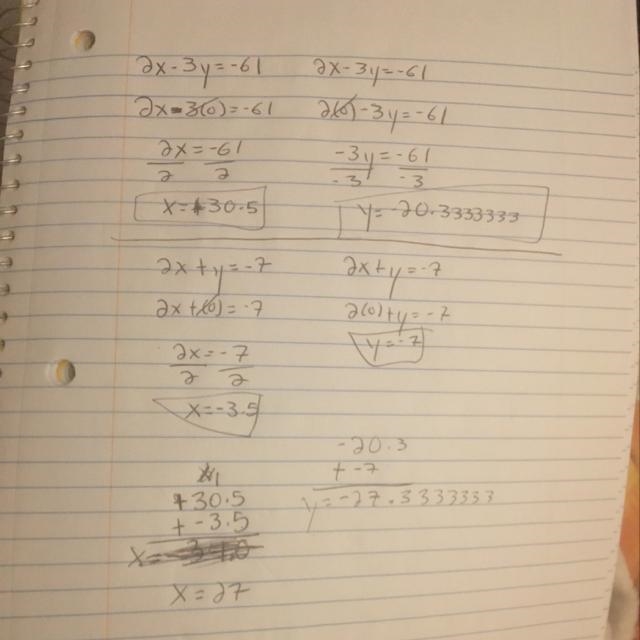 2x-3y=-61 2x-3y=-61
2x-3(0)=-61 2(0)-3y=-61
2x=-61 -3y=-61
2 2 -3 -3
x=+30.5 y=-20.3333333
2x+y=-7 2x+y=-7
2x+(0)=-7 2(0)+y=-7
2x=-7 y=-7
2 2
x=-3.5
-20.3
+ -7
+30.5 y=-27.3333333
+ -3.5
x=
x=27